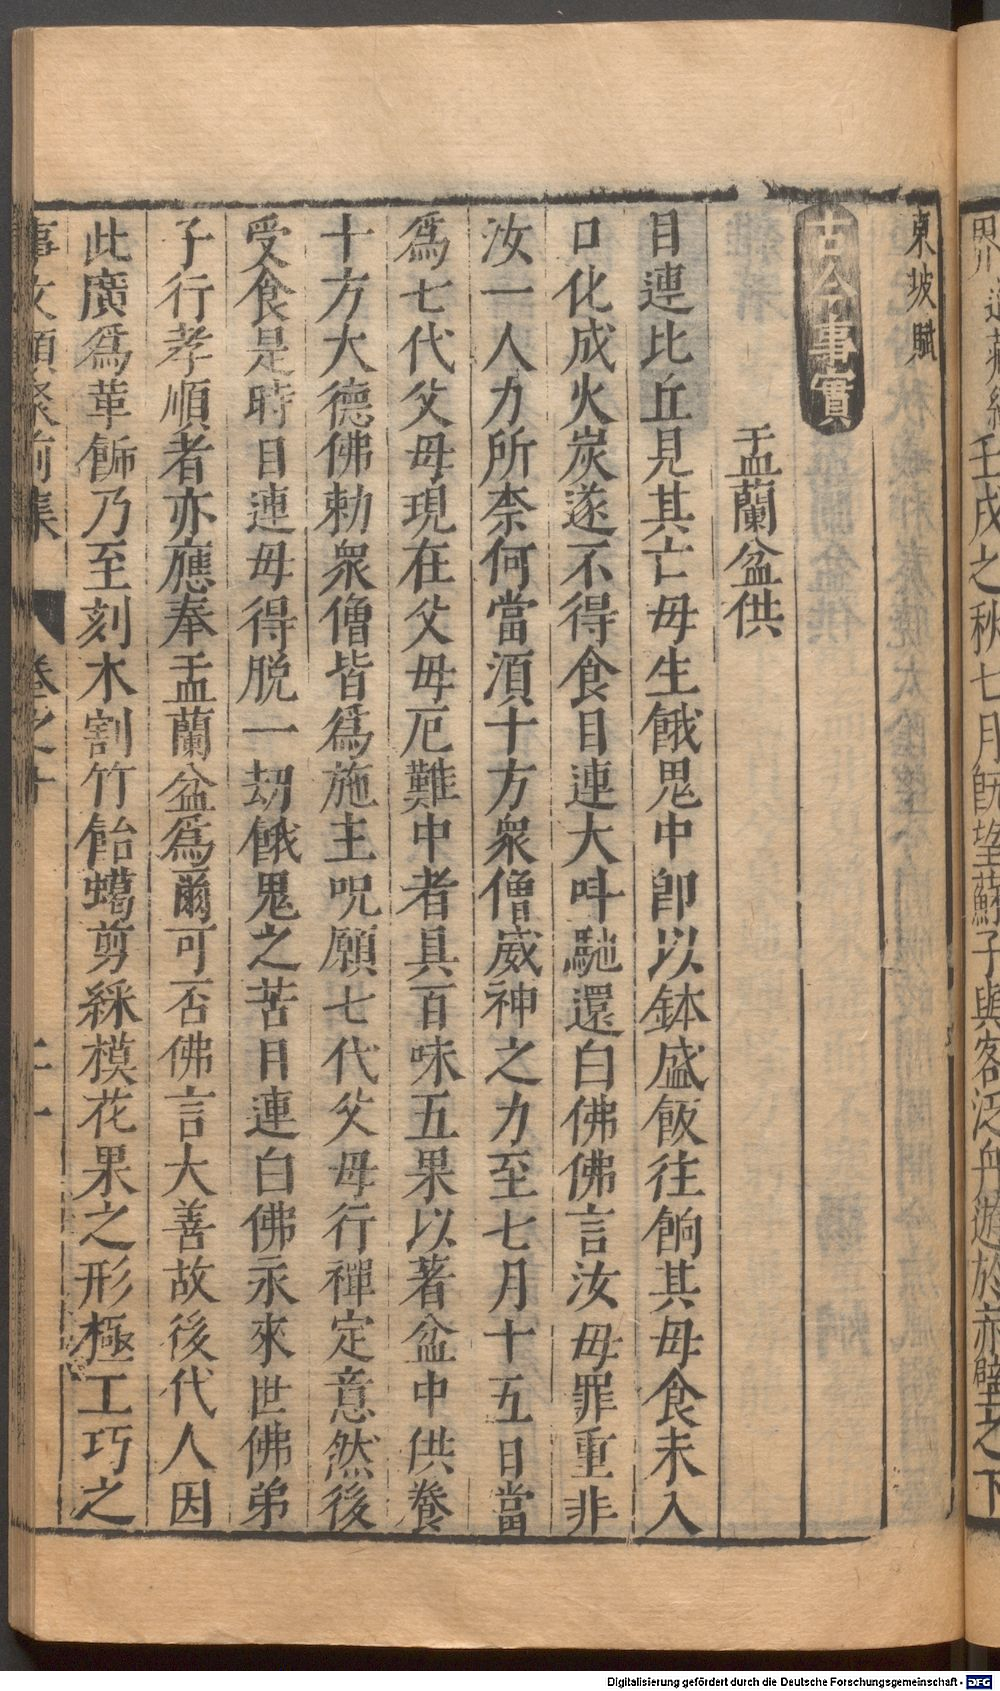 壬戌之秋七月旣望蘇子與客泛舟遊於赤壁之下
東坡賦
古今事實
盂蘭盆供
目連比丘見其亡母生餓鬼中卽以鉢盛飯往餉其母食未入
口化成火炭遂不得食目連大呌馳還白佛佛言汝母罪重非
汝一人力所柰何當湏十方衆僧威神之力至七月十五日當
爲七代父母現在父母厄難中者具百味五果以著盆中供養
十方大德佛勅衆僧皆爲施主呪願七代父母行禪定意然後
受食是時目連母得脫一刼餓鬼之苦目連白佛永來世佛弟
子行孝順者亦應奉盂蘭盆爲爾可否佛言大善故後代人因
此廣爲華飾乃至刻木割竹飴蠟剪綵模花果之形極工巧之
事文類聚前集 卷之十 二一
Digitalisierung gefördert durch die Deutsche Forschungsgemeinschaft - DFG